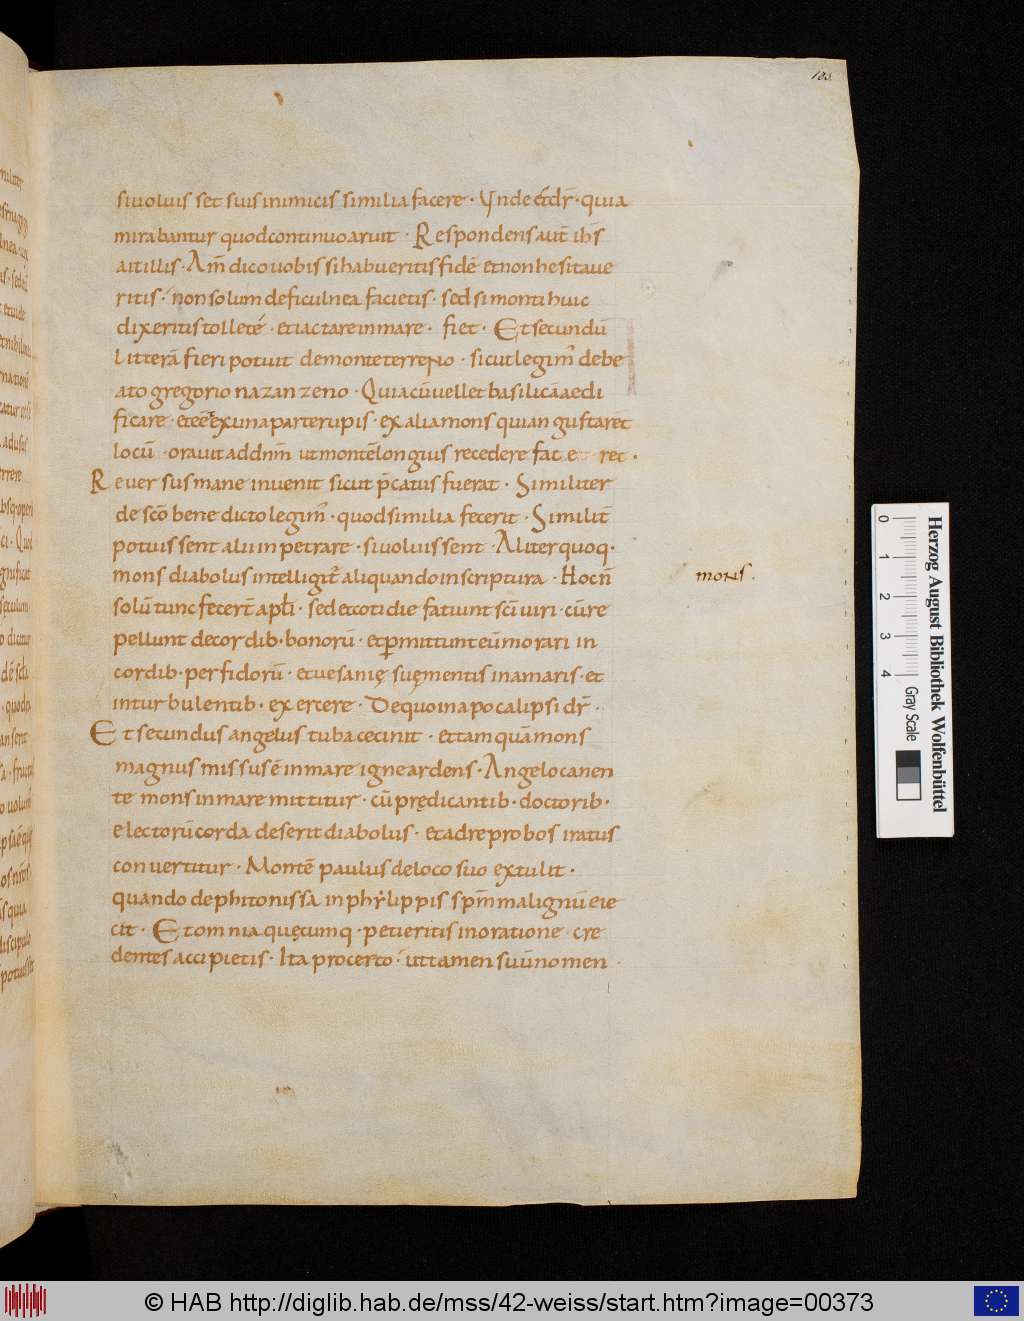 183
siuoluis set suis inimicis similia facere · Unde &dr̄ · quia
mirabantur quod continuo aruit · Respondens aut̄ ih̄s
ait illis · Am̄ dico uobis si habueritis fidē et non hesitaue
ritis · non solum de ficulnea facietis · sed si monti huic
dixeritis tolle te · et iactare in mare · fiet · Et secundū
litterā fieri potuit de monte terreno · sicut legim̄ de be
ato gregorio nazanzeno · Quia cū uellet basilicā aedi
ficare · et eēt ex una parte rupis · ex alia mons qui angustaret
locū · orauit ad dn̄m ut montē longius recedere fac ret ·
Reuersus mane inuenit sicut p̄catus fuerat · Similiter
de sc̄o benedicto legim̄ · quod similia fecerit · Similit̄
potuissent alii inpetrare · si uoluissent · Aliter quoq·
mons diabolus intelligit̄ aliquando in scriptura · Hoc n̄
solū tunc fecer̄ apl̄i · sed et cotidie faciunt sc̄i uiri · cū re
pellunt de cordib· bonorū · et p̱mittunt eū morari in
cordib· perfidorū · et uesanię suę mentis in amaris · et
in turbulentib· exercere · De quo in apocalipsi dr̄ ·
Et secundus angelus tuba cecinit · et tamquā mons
magnus missus ē in mare igne ardens · Angelo canen
te mons in mare mittitur · cū prędicantib· doctorib·
electorū corda deserit diabolus · et ad reprobos iratus
conuertitur · Montē paulus de loco suo extulit ·
quando de phitonissa in phylippis sp̄m malignū eie
cit · Et omnia quęcumq· petieritis in oratione cre
dentes accipietis · Ita pro certo · ut tamen suū nomen
mons ·
Herzog August Bibliothek Wolfenbüttel
0 1 2 3 4
Gray Scale
© HAB http://diglib.hab.de/mss/42-weiss/start.htm?image=00373